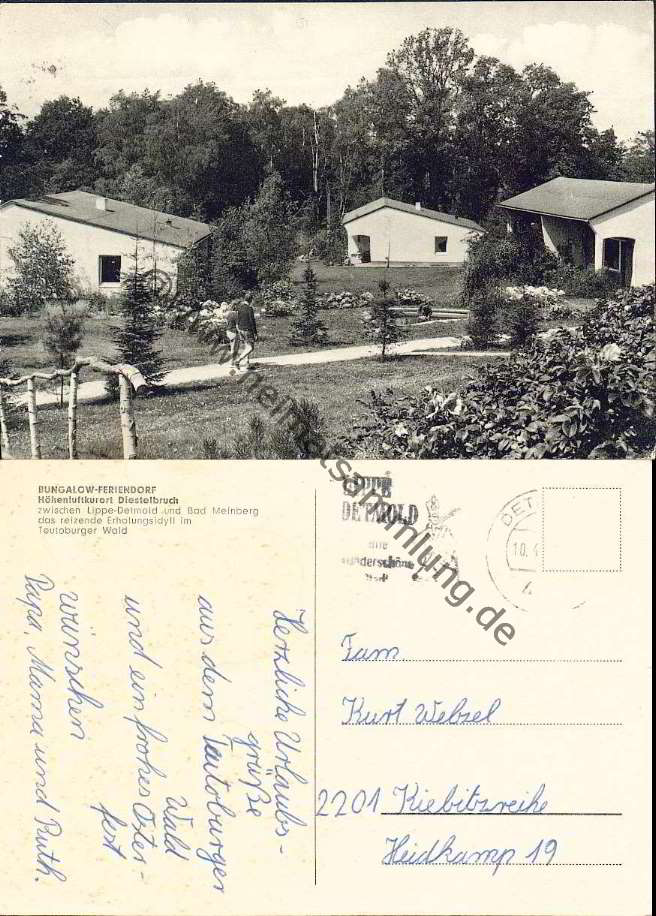 © www.heimatsammlung.de
BUNGALOW-FERIENDORF
Höhenluftkurort Diestelbruch
zwischen Lippe-Detmold und Bad Meinberg
das reizende Erholungsidyll im
Teutoburger Wald
Herzliche Urlaubs-
grüße
aus dem Teutoburger
Wald
und ein frohes Oster-
fest
wünschen
Papa, Mama und Ruth.
LIPPE
DETMOLD
eine
wunderschöne
DET
10.
Fam
Kurt Webzel
2201 Kiebitzreihe
Heidkamp 19